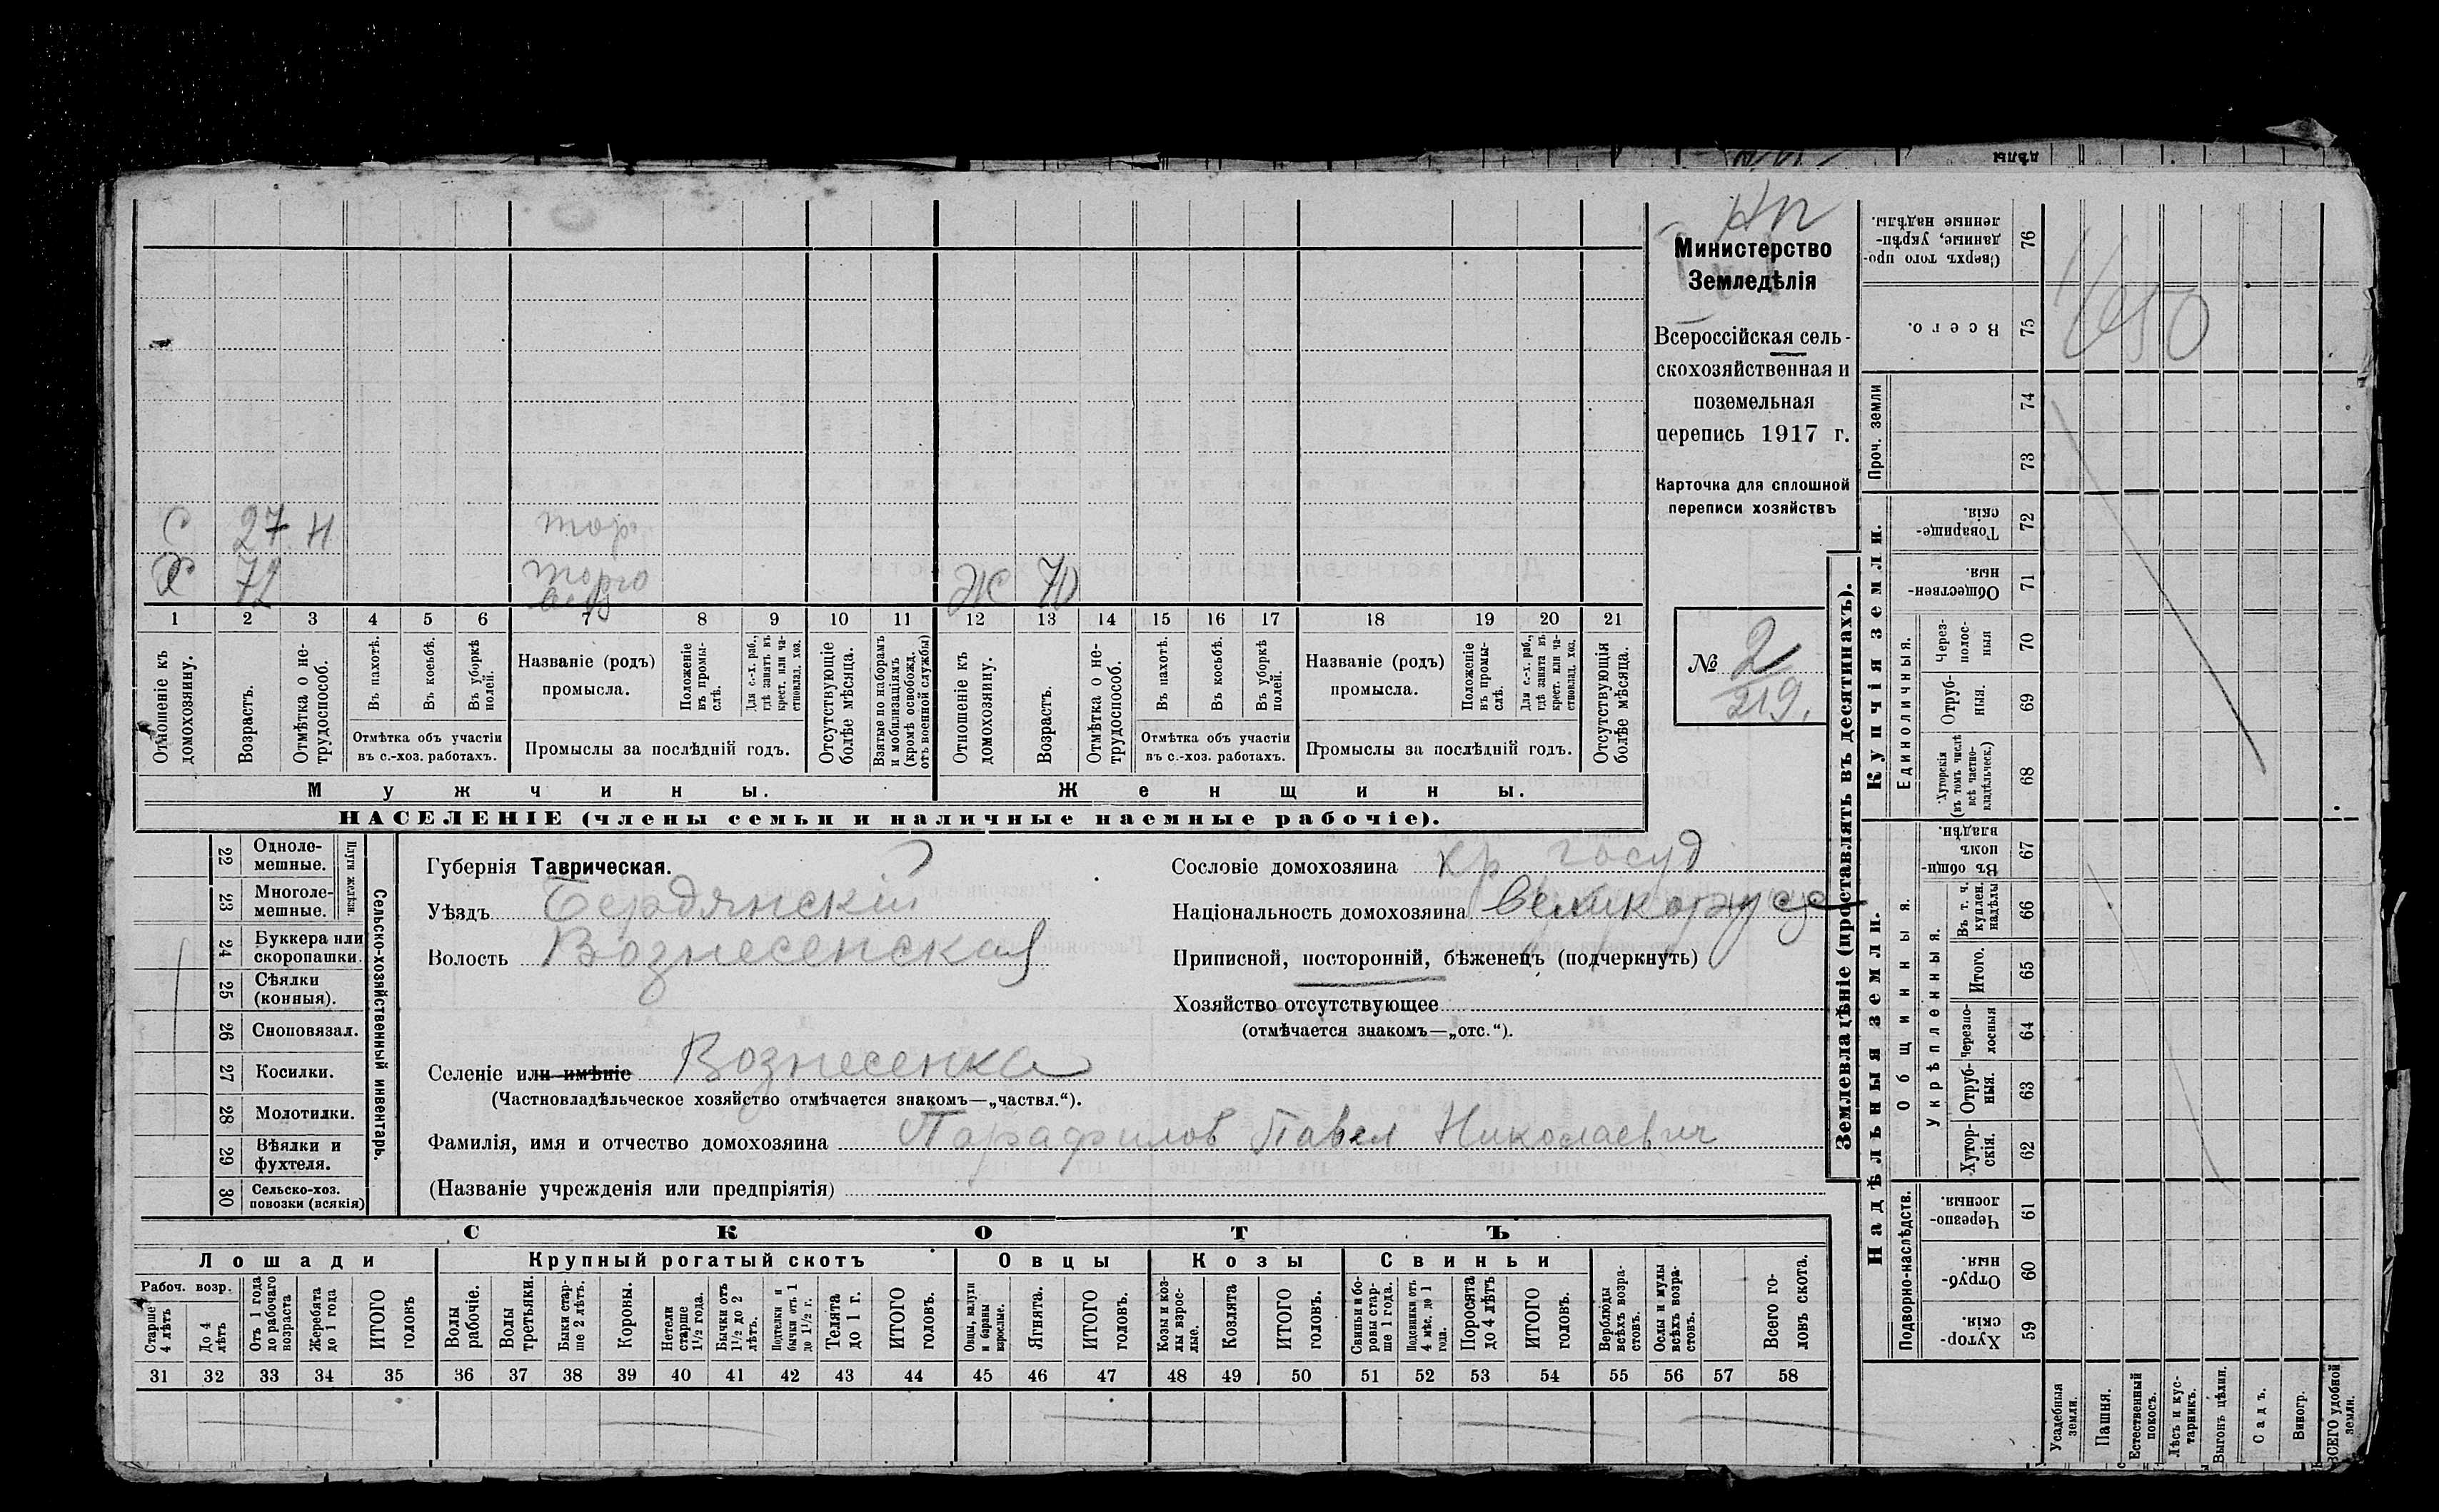 дѣлы
НП
Министерство
Земледѣлія
Всероссійская сель-
скохозяйственная и
поземельная
перепись 1917 г.
Карточка для сплошной
переписи хозяйствъ
№ 2
219.
С 27 Н торг
Х 72 торго
Ж 70
1 2 3 4 5 6 7 8 9 10 11 12 13 14 15 16 17 18 19 20 21
Отношеніе къ домохозяину.
Возрастъ.
Отмѣтка о не-трудоспособ.
Въ пахотѣ.
Въ косьбѣ.
Въ уборкѣ полей.
Отмѣтка объ участіи
въ с.-хоз. работахъ.
Названіе (родъ)
промысла.
Положеніе въ промы-слѣ.
Для с.-х. раб., гдѣ занятъ въ крест. или ча-стновлад. хоз.
Промыслы за послѣдній годъ.
Отсутствующіе болѣе мѣсяца.
Взятые по наборамъ и мобилизаціямъ (кромѣ освобожд. отъ военной службы)
Отношеніе къ домохозяину.
Возрастъ.
Отмѣтка о не-трудоспособ.
Въ пахотѣ.
Въ косьбѣ.
Въ уборкѣ полей.
Отмѣтка объ участіи
въ с.-хоз. работахъ.
Названіе (родъ)
промысла.
Положеніе въ промы-слѣ.
Для с.-х. раб., гдѣ занята въ крест. или ча-стновлад. хоз.
Промыслы за послѣдній годъ.
Отсутствующія болѣе мѣсяца.
Мужчины. Женщины.
НАСЕЛЕНІЕ (члены семьи и наличные наемные рабочіе).
22 Одноле-мешные.
23 Многоле-мешные.
Плуги желѣзн.
24 Буккера или скоропашки.
25 Сѣялки (конныя).
26 Сноповязал.
27 Косилки.
28 Молотилки.
29 Вѣялки и фухтеля.
30 Сельско-хоз. повозки (всякія)
Сельско-хозяйственный инвентарь.
Губернія Таврическая.
Уѣздъ Бердянскій
Волость Вознесенская
Селеніе или имѣніе Вознесенка
(Частновладѣльческое хозяйство отмѣчается знакомъ—„частвл.“).
Фамилія, имя и отчество домохозяина Парафилов Павел Николаевич
(Названіе учрежденія или предпріятія)
Сословіе домохозяина кр госуд
Національность домохозяина великорусс
Приписной, посторонній, бѣженецъ (подчеркнуть)
Хозяйство отсутствующее
(отмѣчается знакомъ—„отс.“).
СКОТЪ
Лошади Крупный рогатый скотъ Овцы Козы Свиньи
Рабоч. возр.
Старше 4 лѣтъ
До 4 лѣтъ
Отъ 1 года до рабочаго возраста
Жеребята до 1 года
ИТОГО головъ
Волы рабочіе.
Волы третьяки.
Быки стар-ше 2 лѣтъ.
Коровы.
Нетели старше 1½ года.
Бычки отъ 1½ до 2 лѣтъ.
Подтелки и бычки отъ 1 до 1½ г.
Телята до 1 г.
ИТОГО головъ.
Овцы, валухи и бараны взрослые.
Ягнята.
ИТОГО головъ.
Козы и коз-лы взрос-лые.
Козлята
ИТОГО головъ.
Свиньи и бо-ровы стар-ше 1 года.
Подсвинки отъ 4 мѣс. до 1 года.
Поросята до 4 лѣтъ
ИТОГО головъ.
Верблюды всѣхъ возра-стовъ.
Ослы и мулы всѣхъ возра-стовъ.
Всего го-ловъ скота.
31 32 33 34 35 36 37 38 39 40 41 42 43 44 45 46 47 48 49 50 51 52 53 54 55 56 57 58
Землевладѣніе (проставлять въ десятинахъ).
Сверхъ того про-данные, укрѣп-ленные надѣлы. 76
Всего. 75
1/650
Проч. земли
74
73
Купчія земли.
Товарище-скія. 72
Обществен-ныя. 71
Единоличныя.
Через-полос-ныя 70
Отруб-ныя. 69
Хуторскія (въ томъ числѣ всѣ частно-владѣльческ.) 68
Надѣльныя земли.
Общинныя.
Въ общи-номъ владѣн. 67
Укрѣпленныя.
Въ т. ч. куплен. надѣлы 66
Итого. 65
Черезпо-лосныя 64
Отруб-ныя. 63
Хутор-скія. 62
Подворно-наслѣдств.
Черезпо-лосныя. 61
Отруб-ныя. 60
Хутор-скія. 59
Усадебныя земли.
Пашня.
Естественный покосъ.
Лѣсъ и кус-тарникъ.
Выгонъ цѣлин.
Садъ.
Виногр.
ВСЕГО удобной земли.